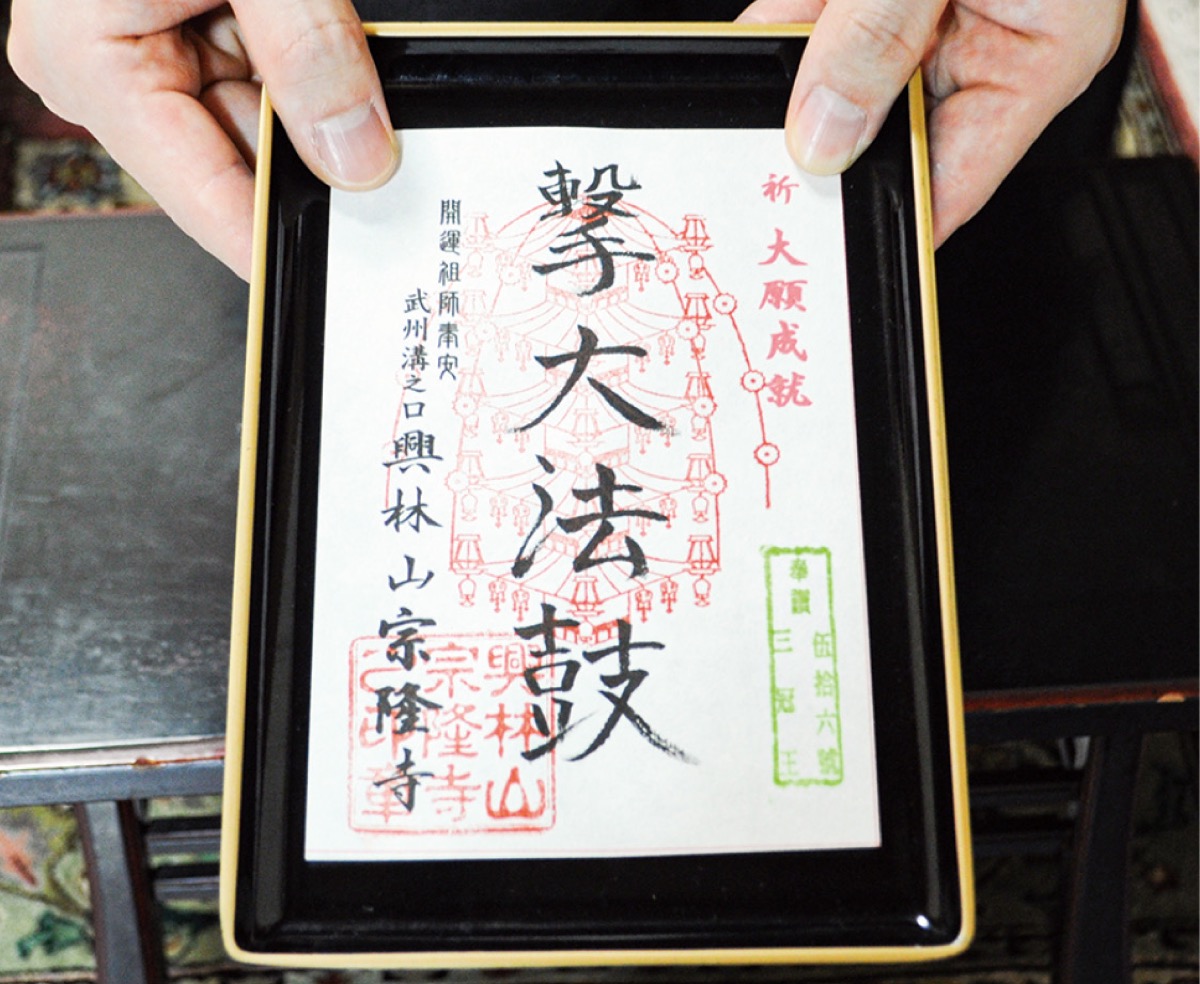 祈 大願成就
奉讃 伍拾六號
三冠王
撃大法鼓
開運祖師奉安
武州溝之口 興林山 宗隆寺
興林山
宗隆寺
之印章